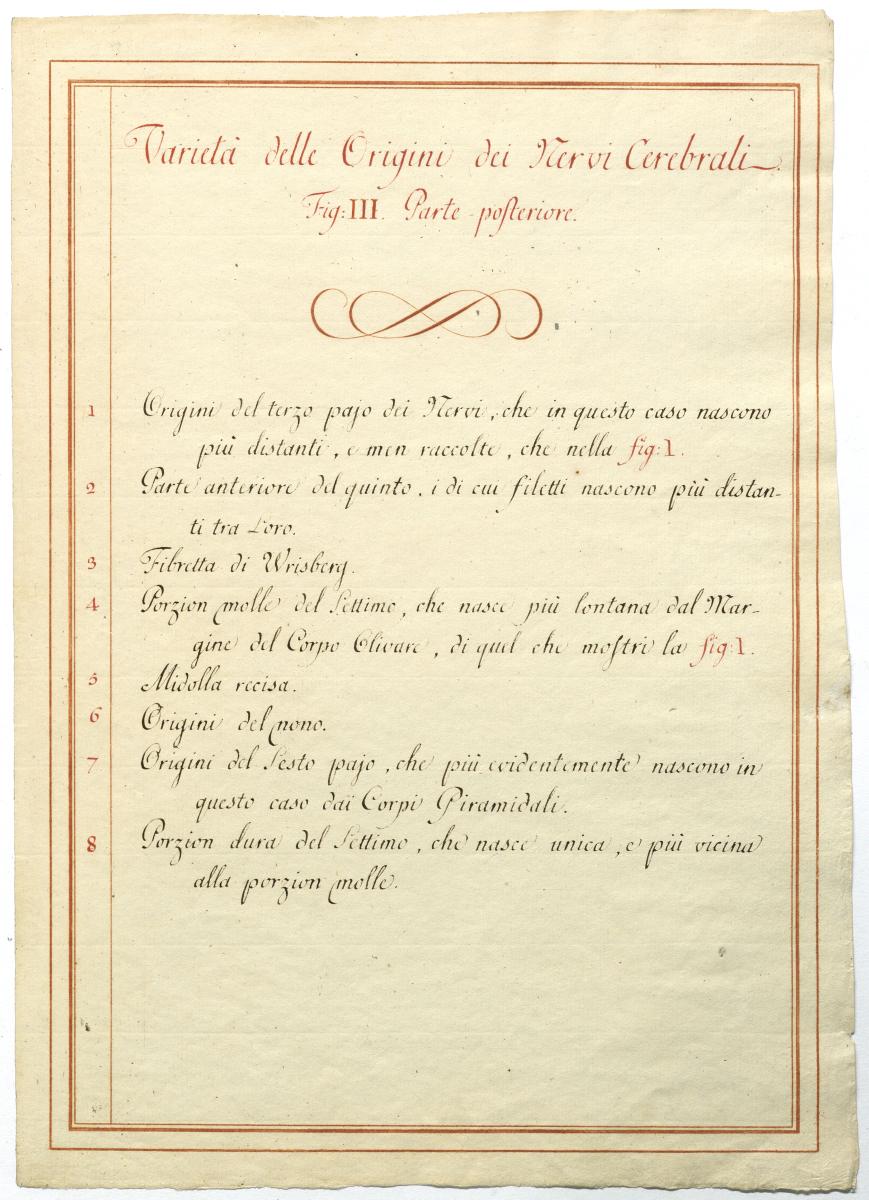 Varietà delle Origini dei Nervi Cerebrali.
Fig: III. Parte posteriore.
1 Origini del terzo pajo dei Nervi, che in questo caso nascono
più distanti, e men raccolte, che nella fig: I.
2 Parte anteriore del quinto, i di cui filetti nascono più distan-
ti tra Loro.
3 Fibretta di Wrisberg.
4 Porzion molle del Settimo, che nasce più lontana dal Mar-
gine del Corpo Olivare, di quel che mostri la fig: I.
5 Midolla recisa.
6 Origini del nono.
7 Origini del Sesto pajo, che più evidentemente nascono in
questo caso dai Corpi Piramidali.
8 Porzion dura del Settimo, che nasce unica, e più vicina
alla porzion molle.